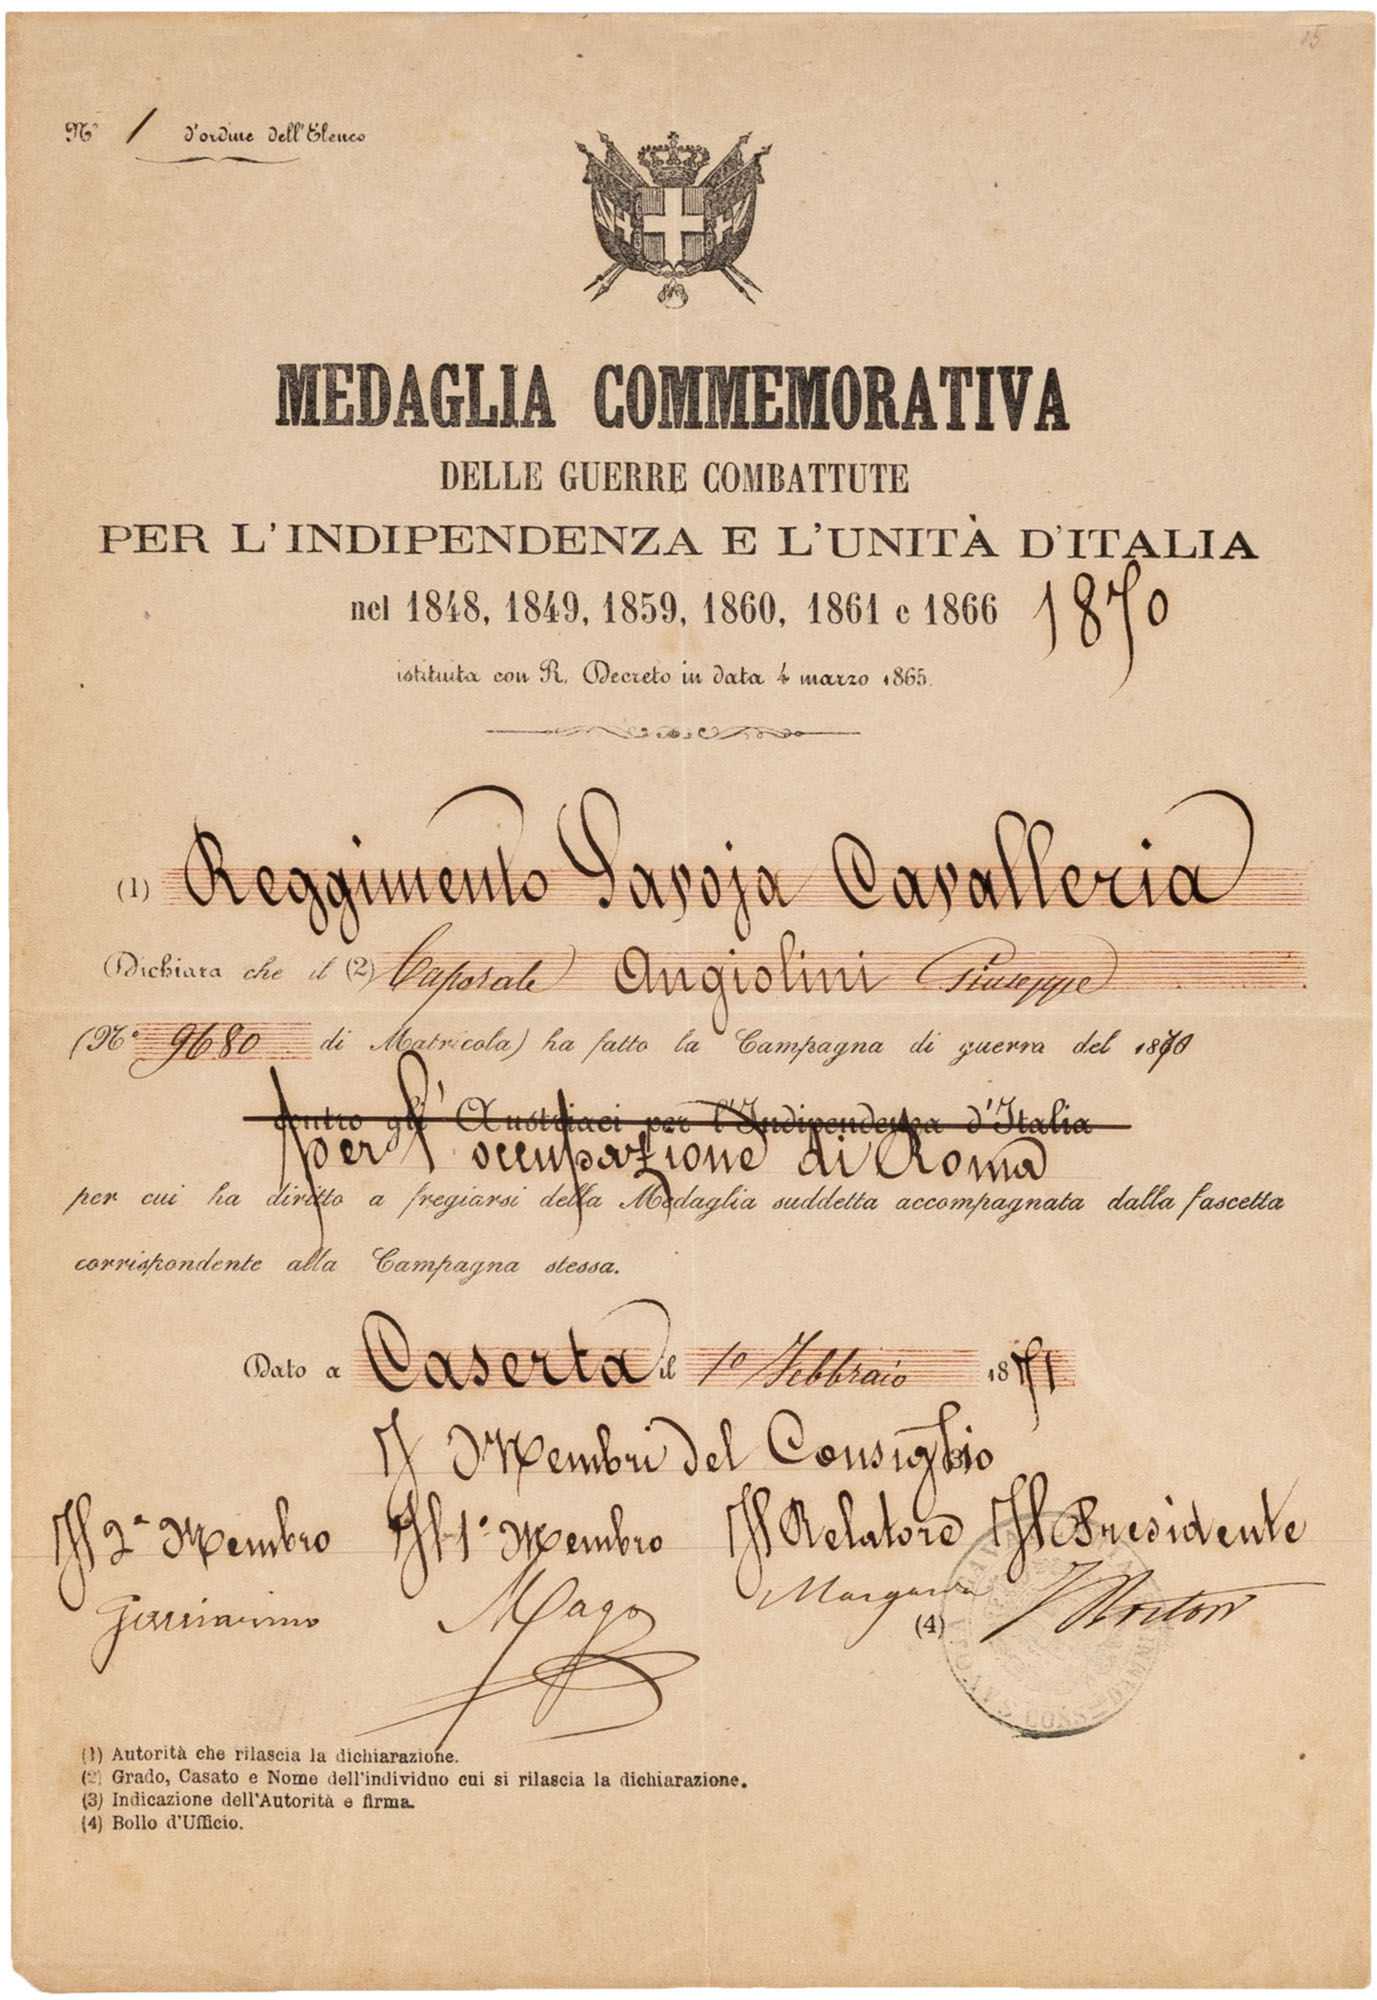 15
N° 1 d'ordine dell'Elenco
MEDAGLIA COMMEMORATIVA
DELLE GUERRE COMBATTUTE
PER L'INDIPENDENZA E L'UNITÀ D'ITALIA
nel 1848, 1849, 1859, 1860, 1861 e 1866 1870
istituita con R. Decreto in data 4 marzo 1865.
(1) Reggimento Savoja Cavalleria
Dichiara che il (2) Caporale Angiolini Giuseppe
(N° 9680 di Matricola) ha fatto la Campagna di guerra del 1870
contro gli Austriaci per l'Indipendenza d'Italia
per l'occupazione di Roma
per cui ha diritto a fregiarsi della Medaglia suddetta accompagnata dalla fascetta
corrispondente alla Campagna stessa.
Dato a Caserta il 1° Febbraio 1871
I Membri del Consiglio
Il 2° Membro Il 1° Membro Il Relatore Il Presidente
Mago
(4)
(1) Autorità che rilascia la dichiarazione.
(2) Grado, Casato e Nome dell'individuo cui si rilascia la dichiarazione.
(3) Indicazione dell'Autorità e firma.
(4) Bollo d'Ufficio.